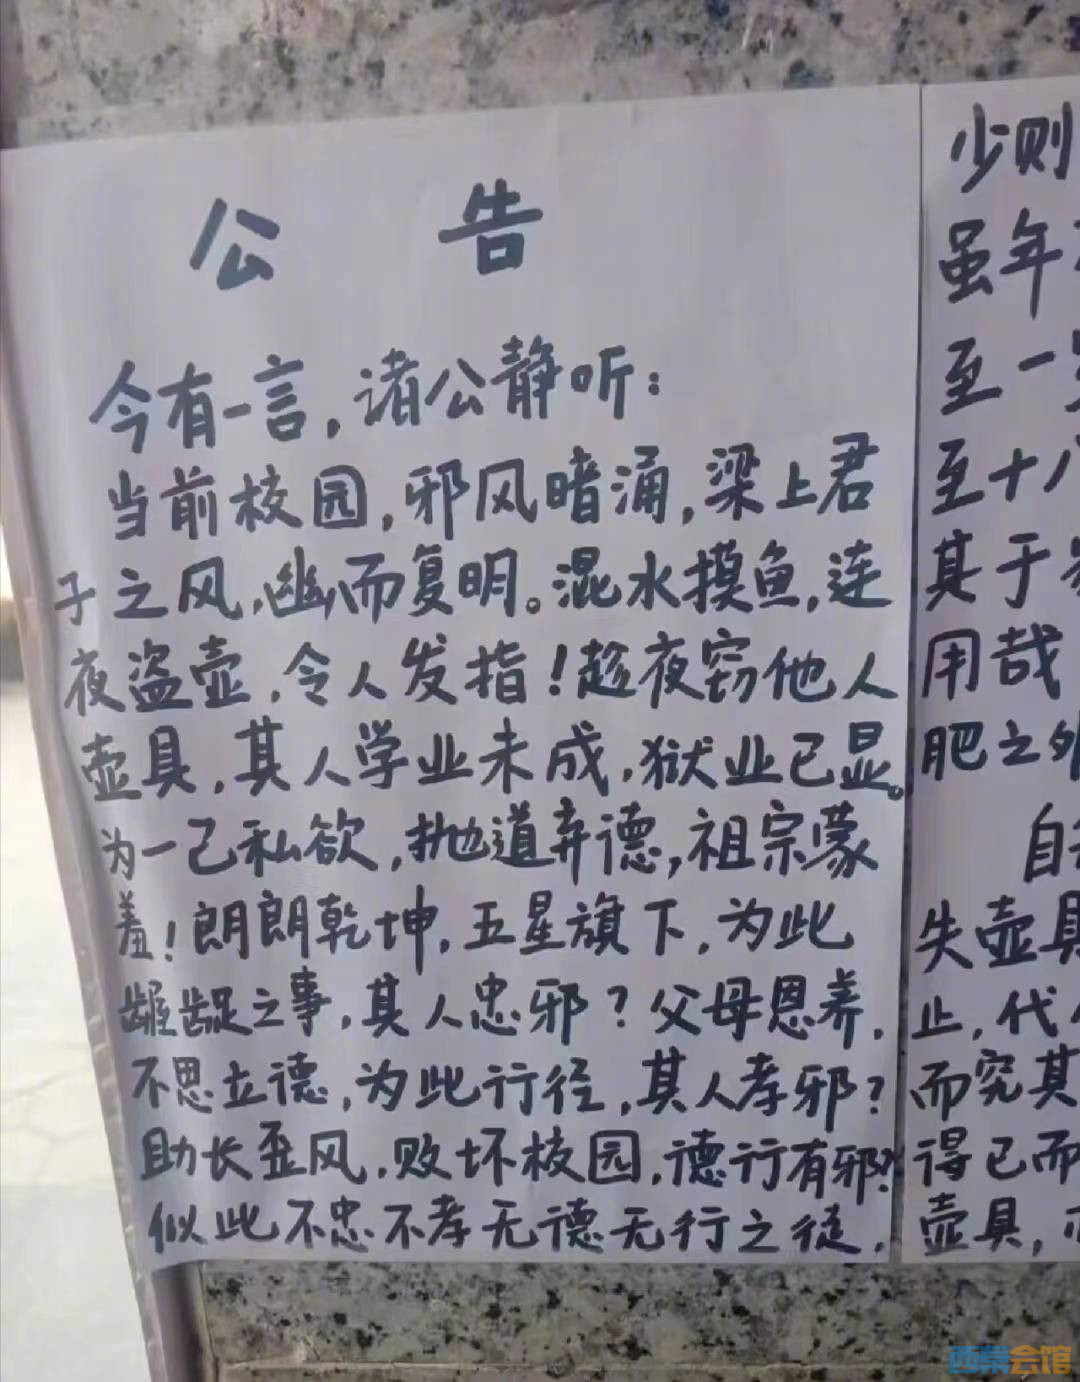 公告
今有一言，诸公静听：
当前校园，邪风暗涌，梁上君
子之风，幽而复明。混水摸鱼，连
夜盗壶，令人发指！趁夜窃他人
壶具，其人学业未成，狱业已显。
为一己私欲，抛道弃德，祖宗蒙
羞！朗朗乾坤，五星旗下，为此
龌龊之事，其人忠邪？父母恩养，
不思立德，为此行径，其人孝邪？
助长歪风，败坏校园，德行有邪？
似此不忠不孝无德无行之徒，
少则
虽年
至一
至十八
其于
用哉
肥之外
自
失壶具
止，代
而究其
得已而
壶具，
西蒙会馆